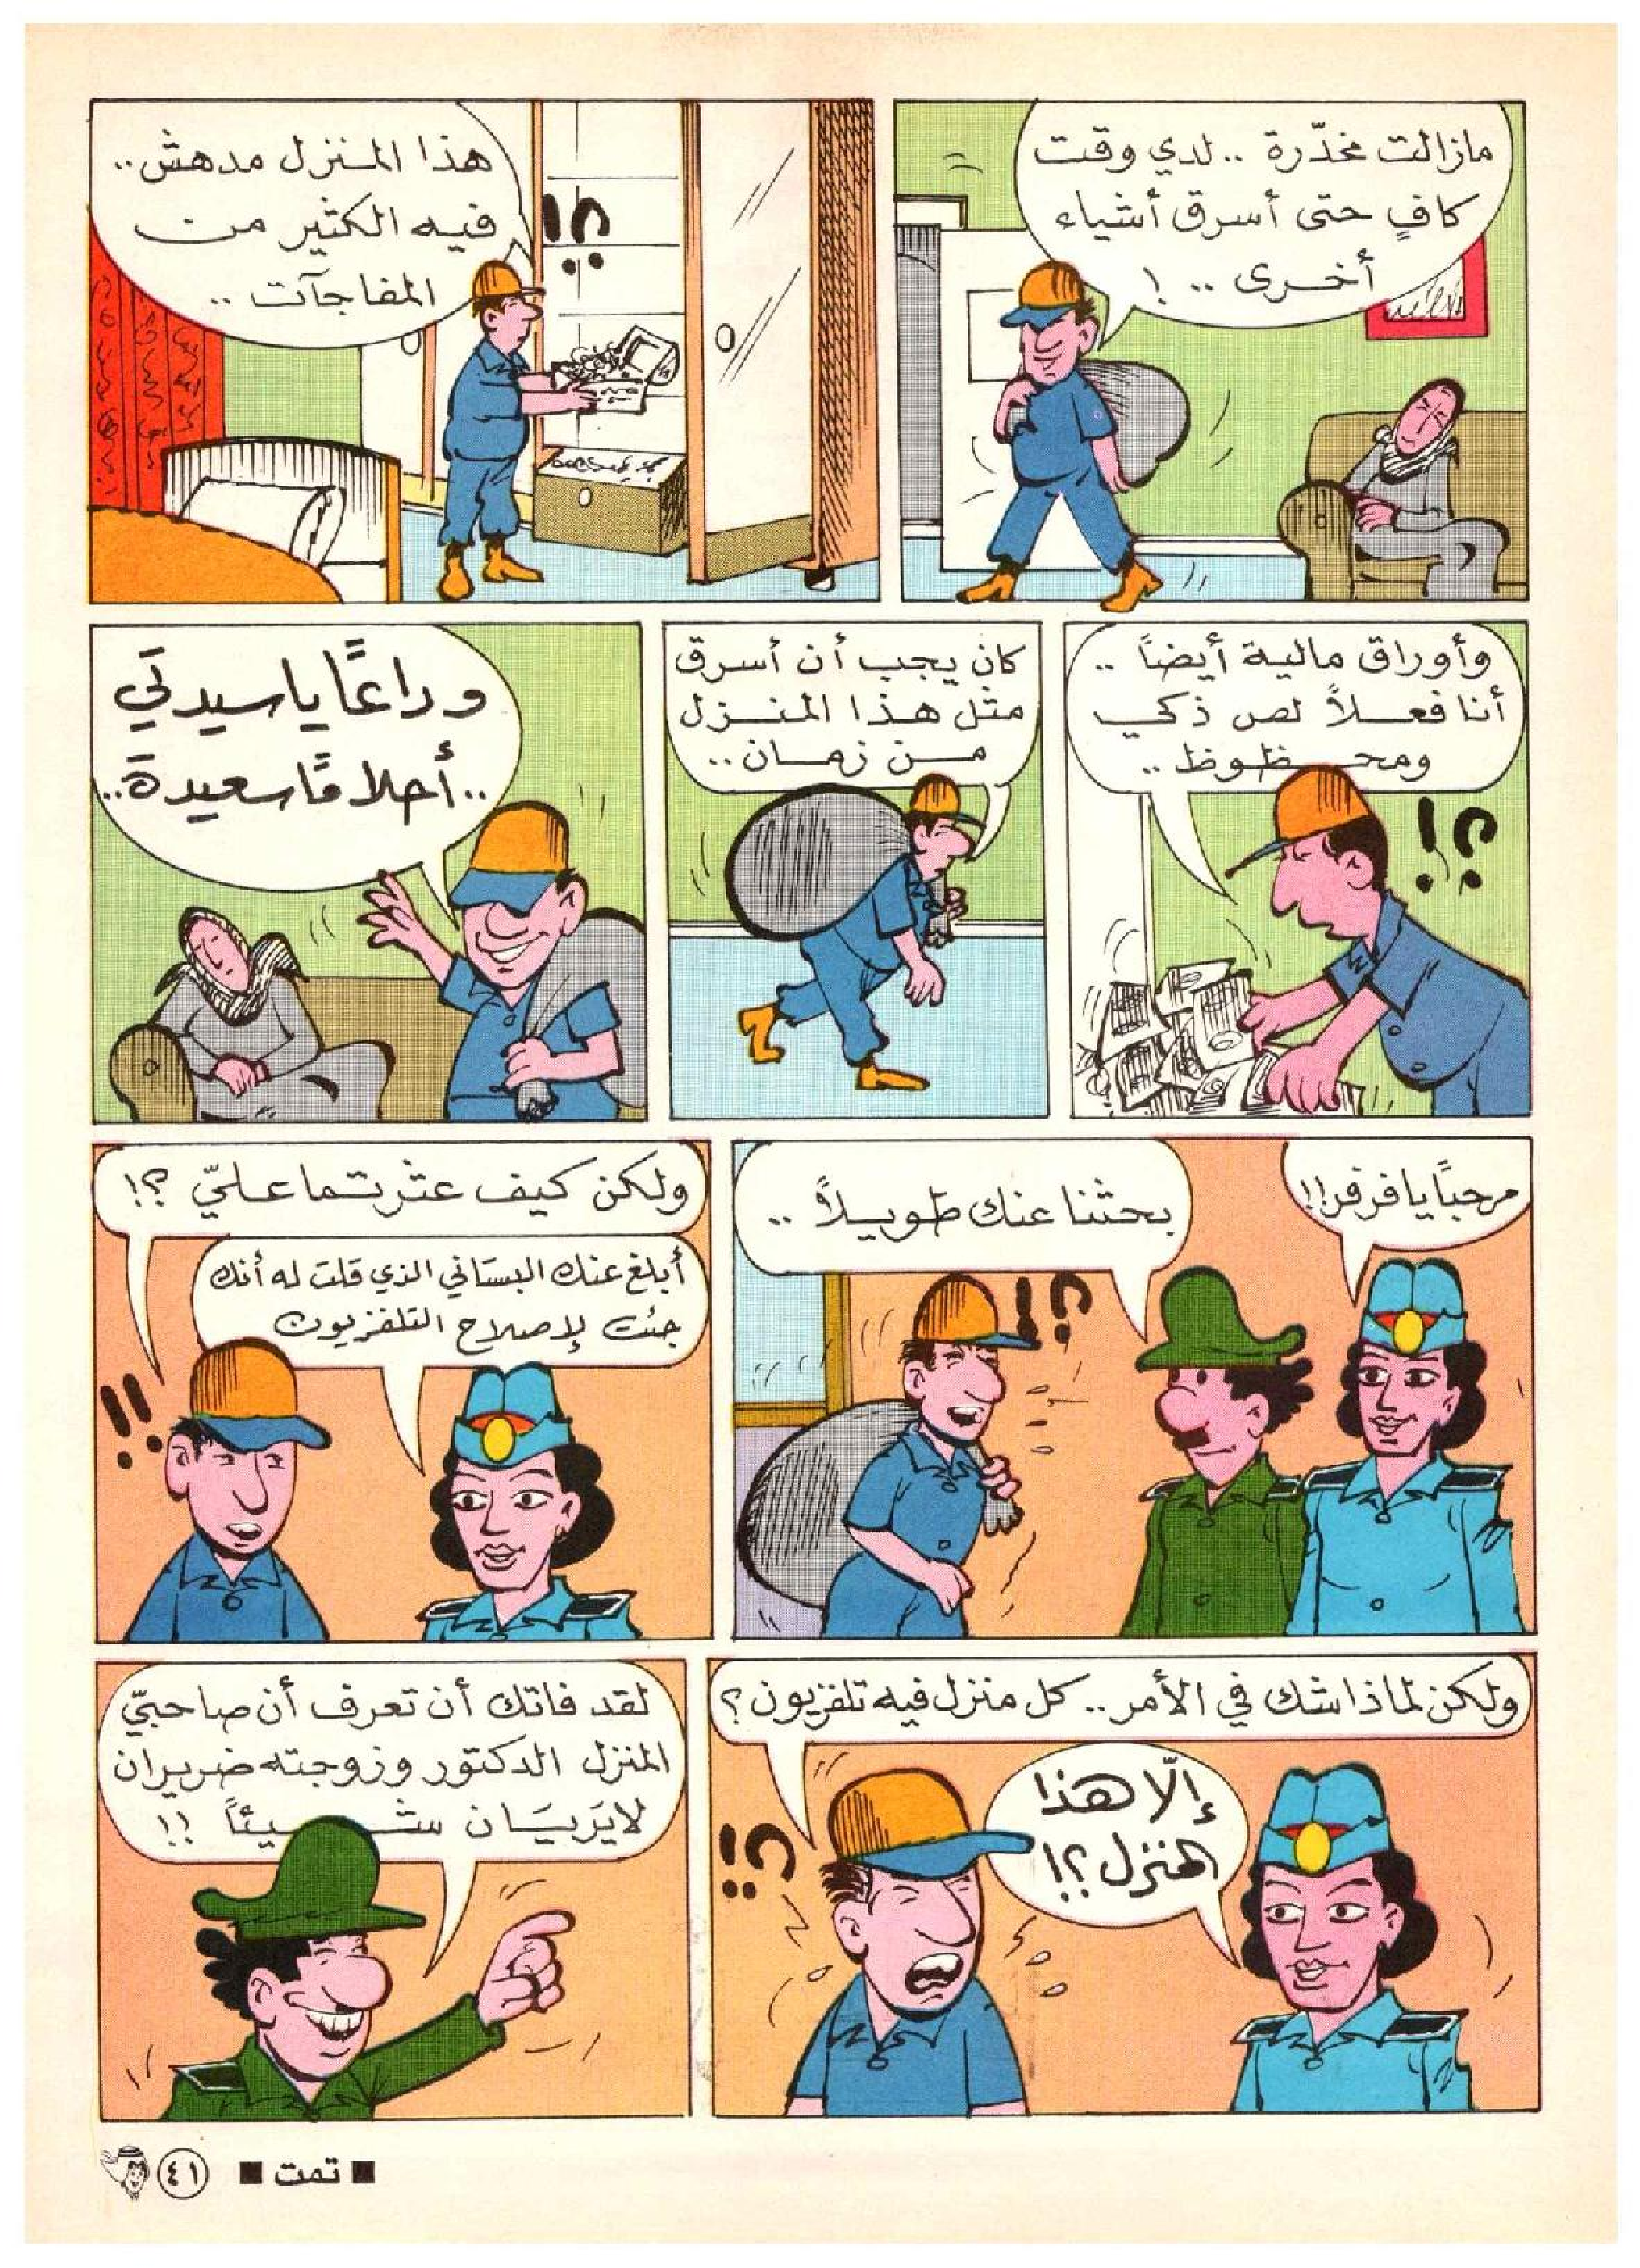 مازالت مخدّرة .. لدي وقت
كافٍ حتى أسرق أشياء
أخرى .. !
هذا المنزل مدهش ..
فيه الكثير من
المفاجآت ..
؟!
وأوراق مالية أيضاً ..
أنا فعلاً لص ذكي
ومحظوظ ..
؟!
كان يجب أن أسرق
مثل هذا المنزل
من زمان ..
وداعًا يا سيدتي
.. أحلامًا سعيدة ..
مرحبًا يا فرفر !!
بحثنا عنك طويلاً ..
؟!
ولكن كيف عثرتما عليّ ؟!
أبلغ عنك البستاني الذي قلت له أنك
جئت لإصلاح التلفزيون
!!
ولكن لماذا شك في الأمر .. كل منزل فيه تلفزيون ؟
إلّا هذا
المنزل ؟!
؟!
لقد فاتك أن تعرف أن صاحبيّ
المنزل الدكتور وزوجته ضريران
لا يَريَان شيئاً !!
■ تمت ■
٤١